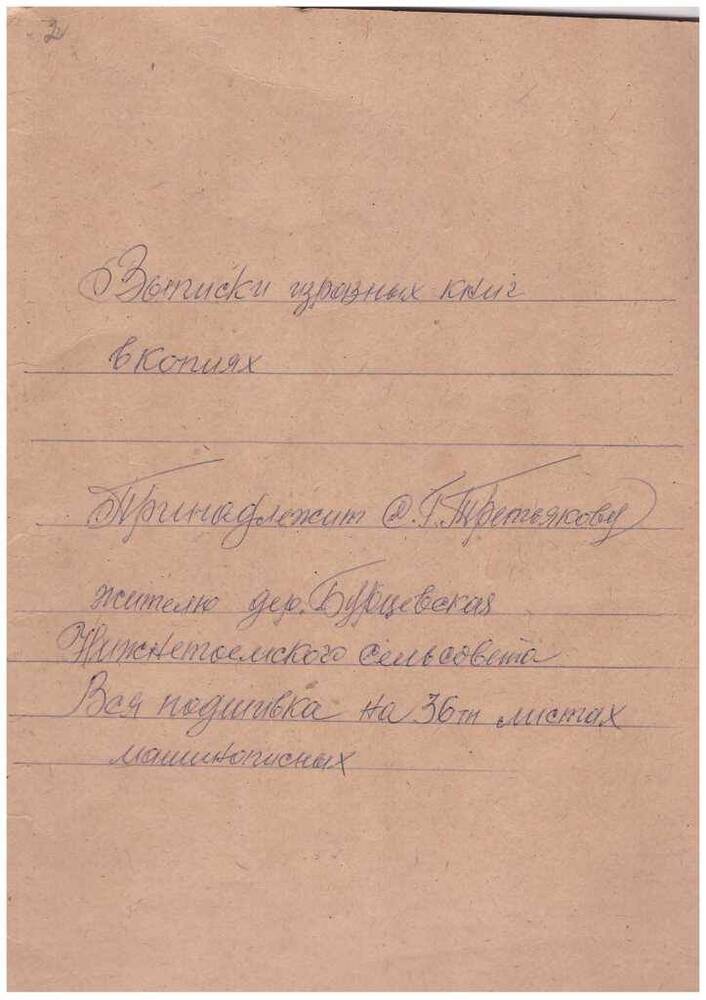 2
Выписки изразных книг
в копиях
Принадлежит Ф.Г. Третьякову
жителю дер. Бурцевская
Нижнетоемского сельсовета
Вся подшивка на 36ти листах
машинописных